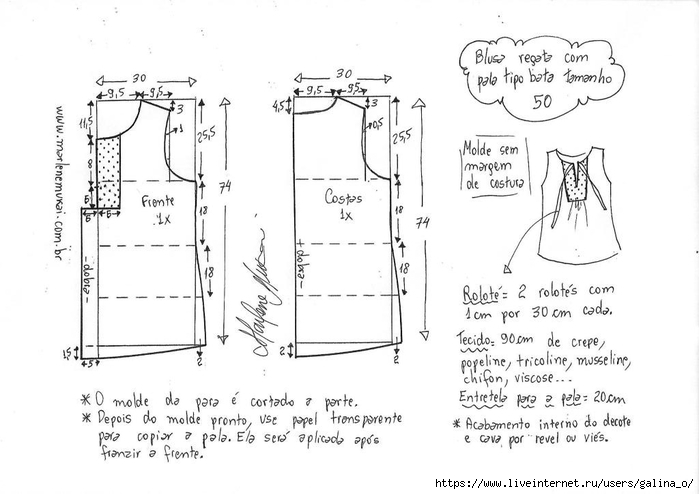 30
9,5
9,5
11,5
3
1
25,5
8
5
5
5
Frente
1x
74
18
18
-dobra-
1,5
4,5
2
www.marlenemukai.com.br
30
9,5
9,5
4,5
3
0,5
25,5
Costas
1x
74
18
18
dobra
2
2
Marlene Mukai
Blusa regata com
pala tipo bata tamanho
50
Molde sem
margem
de costura
Roloté = 2 rolotés com
1cm por 30cm cada.
Tecido = 90cm de crepe,
popeline, tricoline, musseline,
chifon, viscose...
Entretela para a pala = 20cm
* Acabamento interno do decote
e cava por revel ou viés.
* O molde da para é cortado a parte.
* Depois do molde pronto, use papel transparente
para copiar a pala. Ela será aplicada após
franzir a frente.
https://www.liveinternet.ru/users/galina_o/